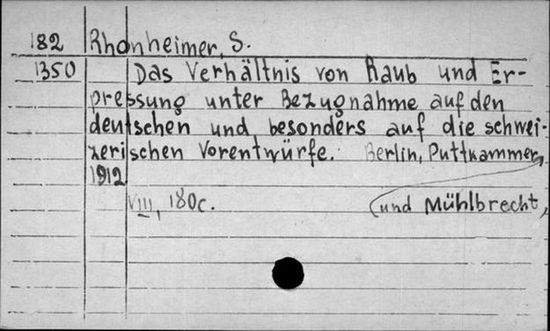 182 Rhonheimer, S.
1350 Das Verhältnis von Raub und Er-
pressung unter Bezugnahme auf den
deutschen und besonders auf die schwei-
zerischen Vorentwürfe. Berlin, Puttkammer,
1912
VIII, 180c. (und Mühlbrecht,